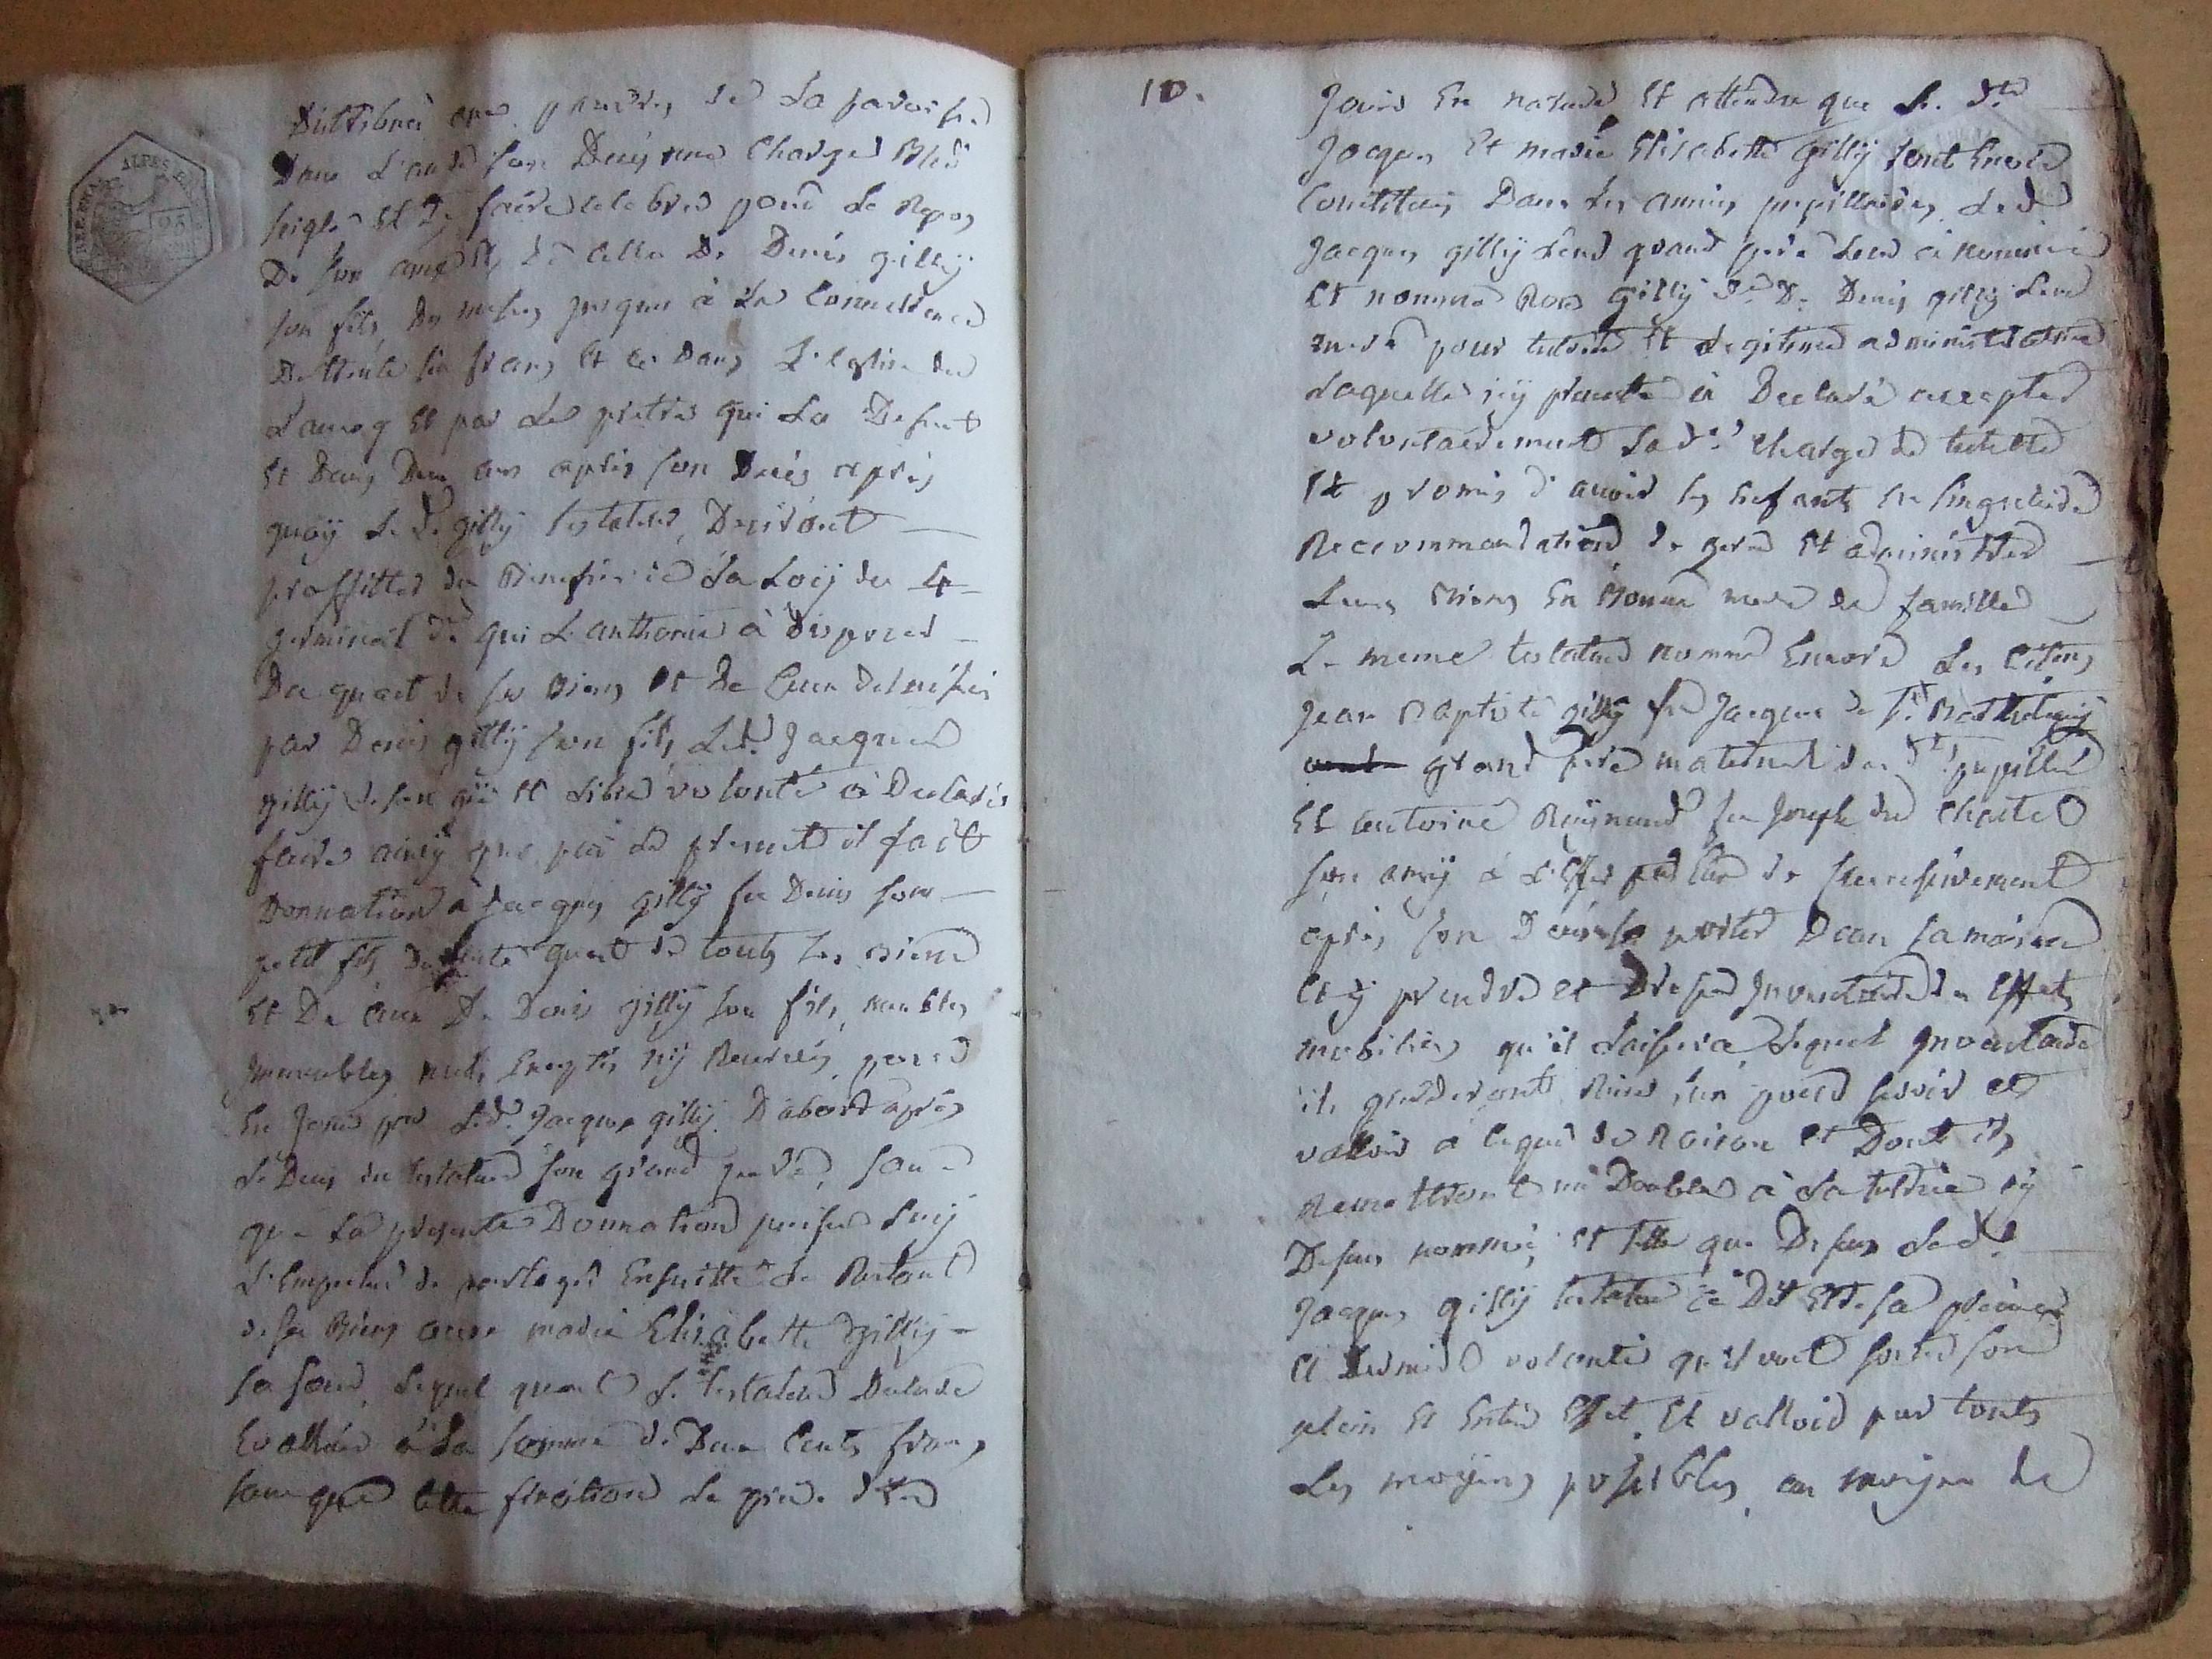 ALPES
25
Distribué aux pauvres de La paroisse
Dans L'an de son Decéz une Charge Bled
seigle et De faire celebrer pour Le Repos
De son ame et de celle De Denis gillÿ
son fils, Des messes jusques à La Concurrence
De trente six frans et ce Dans L'eglise de
et par Les pretres qui La Desservent
Et Dans Deux ans après son Decés après
quoÿ Le d. gillÿ testateur, Desirant
proffitter du Benefice de La Loÿ du 4
germinal de qui L'authorise à disposer
Du quart de ses Biens et De Ceux delaissés
par Denis gillÿ son fils, Led. Jacques
gillÿ de son gré et Libre volonté à Declaré
faire ainsÿ que par Le présent il fait
Donnation à Jacques gillÿ feu Denis son
petit fils du quart de touts ses Biens
Et De Ceux De Denis gillÿ son fils, meubles
Immeubles nuls Exceptés nÿ Reservés, pour
En Jouir par Led. Jacques gillÿ D'abord après
Le Decés du testateur son grand pere, sans
que La presente Donnation puisse Luÿ
L'Empecher de partager Ensuitte Le Restant
de ses Biens avec marie Elisabette gillÿ
sa soeur, Lequel quart Le testateur Declare
Evalluer à La somme de Deux Cents frans,
sans que cette fixation Le prive d'En
10.
Jouir En nature, Et attendu que Les dts
Jacques Et marie Elisabette gillÿ sont Encore
Constitués Dans Les années pupillaires, Led.
Jacques gillÿ Leur grand pere Leur à nommé
Et nomme Rose gillÿ ve De Denis gillÿ Leur
mere pour tutrice et Legitime administratrice
Laquelle icÿ presente à Declaré accepter
volontairement Lad.e Charge de tutelle
Et promis d'avoir ses Enfants En singuliere
Recommandation de gerer Et administrer
Leurs Biens En Bonne mere de famille
Le meme testateur nomme Encore Les Citens
Jean Baptiste gillÿ feu Jacques de St.
grand pere maternel des dts. pupilles
Et antoine Reÿnaud feu Joseph du
son amÿ à L'Effet de successivement
après son Decés se porter Dans sa maison
Et ÿ prendre et Dresser Inventaire des Effets
mobiliers qu'il Laissera Lequel Inventaire
ils garderont pour servir et
valloir à ce que de Raison Et Dont ils
Remettront un Double à La tutrice cÿ
Dessus nommée, et telle que Dessus Led.
Jacques gillÿ testateur à Dit Etre sa
Et Derniere volonté qu'il veut sortir son
plein Et Entier Effet, Et valloir par touts
Les moÿens possibles, au moÿen de